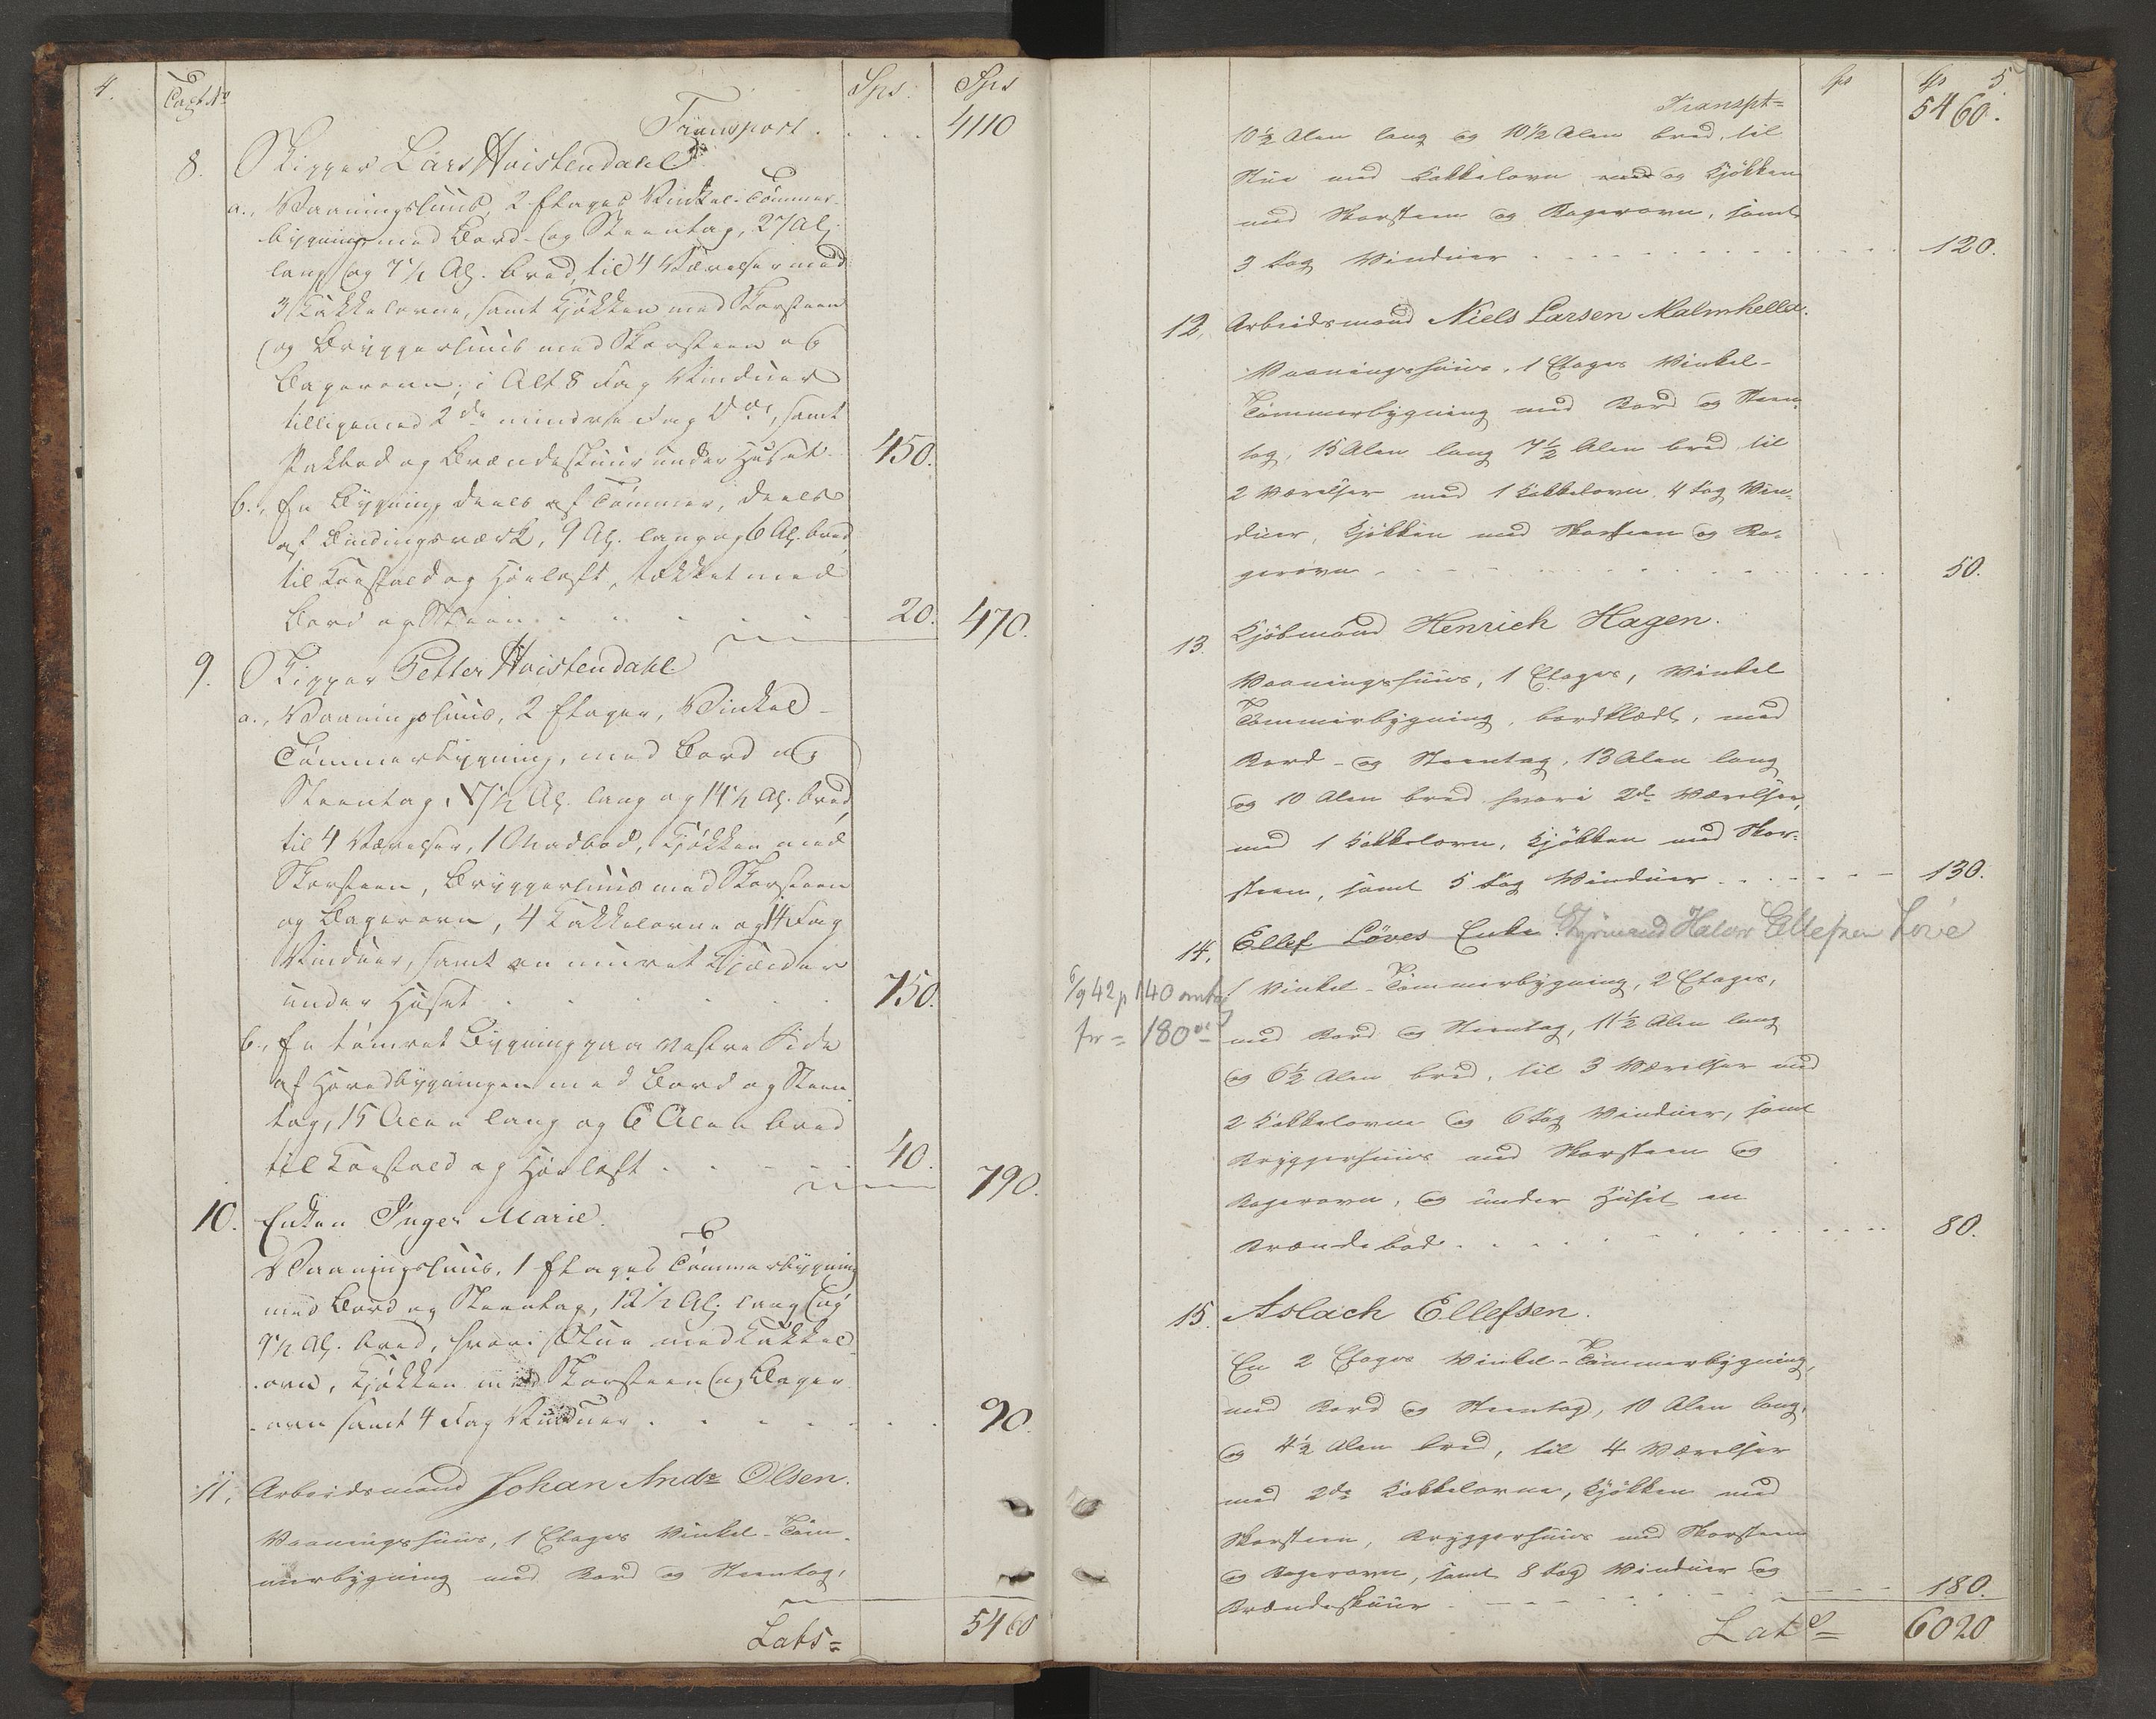 4.
Taxt No
Sps.
Sps
Transport . . . . 4110
8. Skipper Lars Hvistendahl
a., Vaaningshuus, 2 Etages Vinkel-Tømmer-
bygning med Bord- og Steentag, 27 Al.
lang og 7½ Al. bred, til 4 Værelser med
3 Kakkelovne, samt Kjøkken med Skorsteen
og Bryggerhuus med Skorsteen og
Bagerovn, i Alt 8 Fag Vinduer
tilligemed 2de mindre Fag Do, samt
Pakbod og Brændeskuur under Huset. 450.
b., En Bygning deels af Tømmer, deels
af Bindingsværk, 9 Al. lang og 6 Al. bred,
til Koestald og Høeloft, tækket med
Bord og Steen . . . . . 20. 470.
9. Skipper Petter Hvistendahl
a., Vaaningshuus, 2 Etager, Vinkel-
Tømmerbygning, med Bord og
Steentag, 17½ Al. lang og 14½ Al. bred,
til 4 Værelser, 1 Madbod, Kjøkken med
Skorsteen, Bryggerhuus med Skorsteen
og Bagerovn, 4 Kakkelovne og 14 Fag
Vinduer, samt en muret Kjælder
under Huset . . . . . . 750.
b., En tømret Bygning paa vestre Side
af Hovedbygningen med Bord og Steen-
tag, 15 Alen lang og 6 Alen bred
til Koestald og Høeloft . . . . . 40. 790.
10. Enken Inger Marie.
Vaaningshuus, 1 Etages Tømmerbygning
med Bord og Steentag, 12½ Al. lang og
9½ Al. bred, hvori Stue med Kakkel-
ovn, Kjøkken med Skorsteen og Bager-
ovn samt 4 Fag Vinduer . . . . . . 90.
11. Arbeidsmand Johan Andr Olsen.
Vaaningshuus, 1 Etages Vinkel-Töm-
merbygning med Bord og Steentag,
Lats= 5460
sps sps 5.
Transpt= 5460.
10½ Alen lang og 10½ Alen bred, til
Stue med Kakkelovn med og Kjökken
med Skorsteen og Bagerovn, samt
3 Fag Vinduer . . . . . . . . 120.
12. Arbeidsmand Niels Larsen Malmhella.
Vaaningshuus, 1 Etages Vinkel-
Tömmerbygning med Bord og Steen-
tag, 15 Alen lang 7½ Alen bred til
2 Værelser med 1 Kakkelovn, 4 Fag Vin-
duer, Kjökken med Skorsteen og Ba-
gerovn . . . . . . . . 50.
13. Kjöbmand Henrich Hagen.
Vaaningshuus, 1 Etages, Vinkel
Tömmerbygning, bordklædt, med
Bord- og Steentag, 13 Alen lang
og 10 Alen bred hvori 2de Værelser,
med 1 Kakkelovn, Kjökken med Skor-
steen, samt 5 Fag Vinduer . . . . . . 130.
14. Ellef Löves Enke. Styrmand Halvor Ellefsen Löve
6/9 42 p 140
for = 180
1 Vinkel-Tömmerbygning, 2 Etages,
med Bord og Steentag, 11½ Alen lang
og 6½ Alen bred, til 3 Værelser med
2 Kakkelovne og 6 Fag Vinduer, samt
Bryggerhuus med Skorsteen og
Bagerovn, og under Huset en
Brændebod . . . . . . . . 80.
15. Aslach Ellefsen.
En 2 Etages Vinkel-Tömmerbygning,
med Bord og Steentag, 10 Alen lang,
og 4½ Alen bred, til 4 Værelser
med 2de Kakkelovne, Kjökken med
Skorsteen, Bryggerhuus med Skorsteen
og Bagerovn, samt 8 Fag Vinduer og
Brændeskuur . . . . . . 180.
Lats= 6020